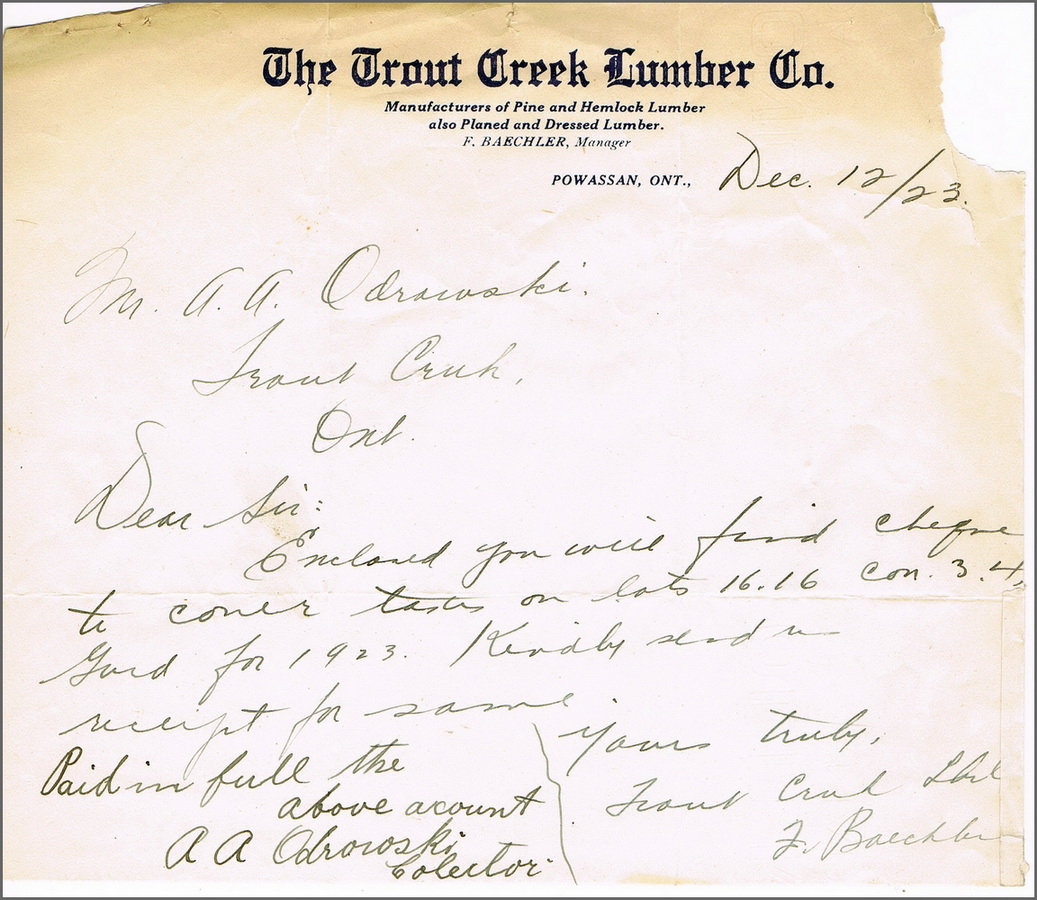 The Trout Creek Lumber Co.
Manufacturers of Pine and Hemlock Lumber
also Planed and Dressed Lumber.
F. BAECHLER, Manager
POWASSAN, ONT., Dec. 12/23.
Mr. A. A. Odrowski.
Trout Creek,
Ont.
Dear Sir:
Enclosed you will find cheque
to cover taxes on lots 16.16 con. 3.4,
Gurd for 1923. Kindly send us
receipt for same.
Yours truly,
Trout Creek
F. Baechler
Paid in full the
above acount
A A Odrowski
Colector